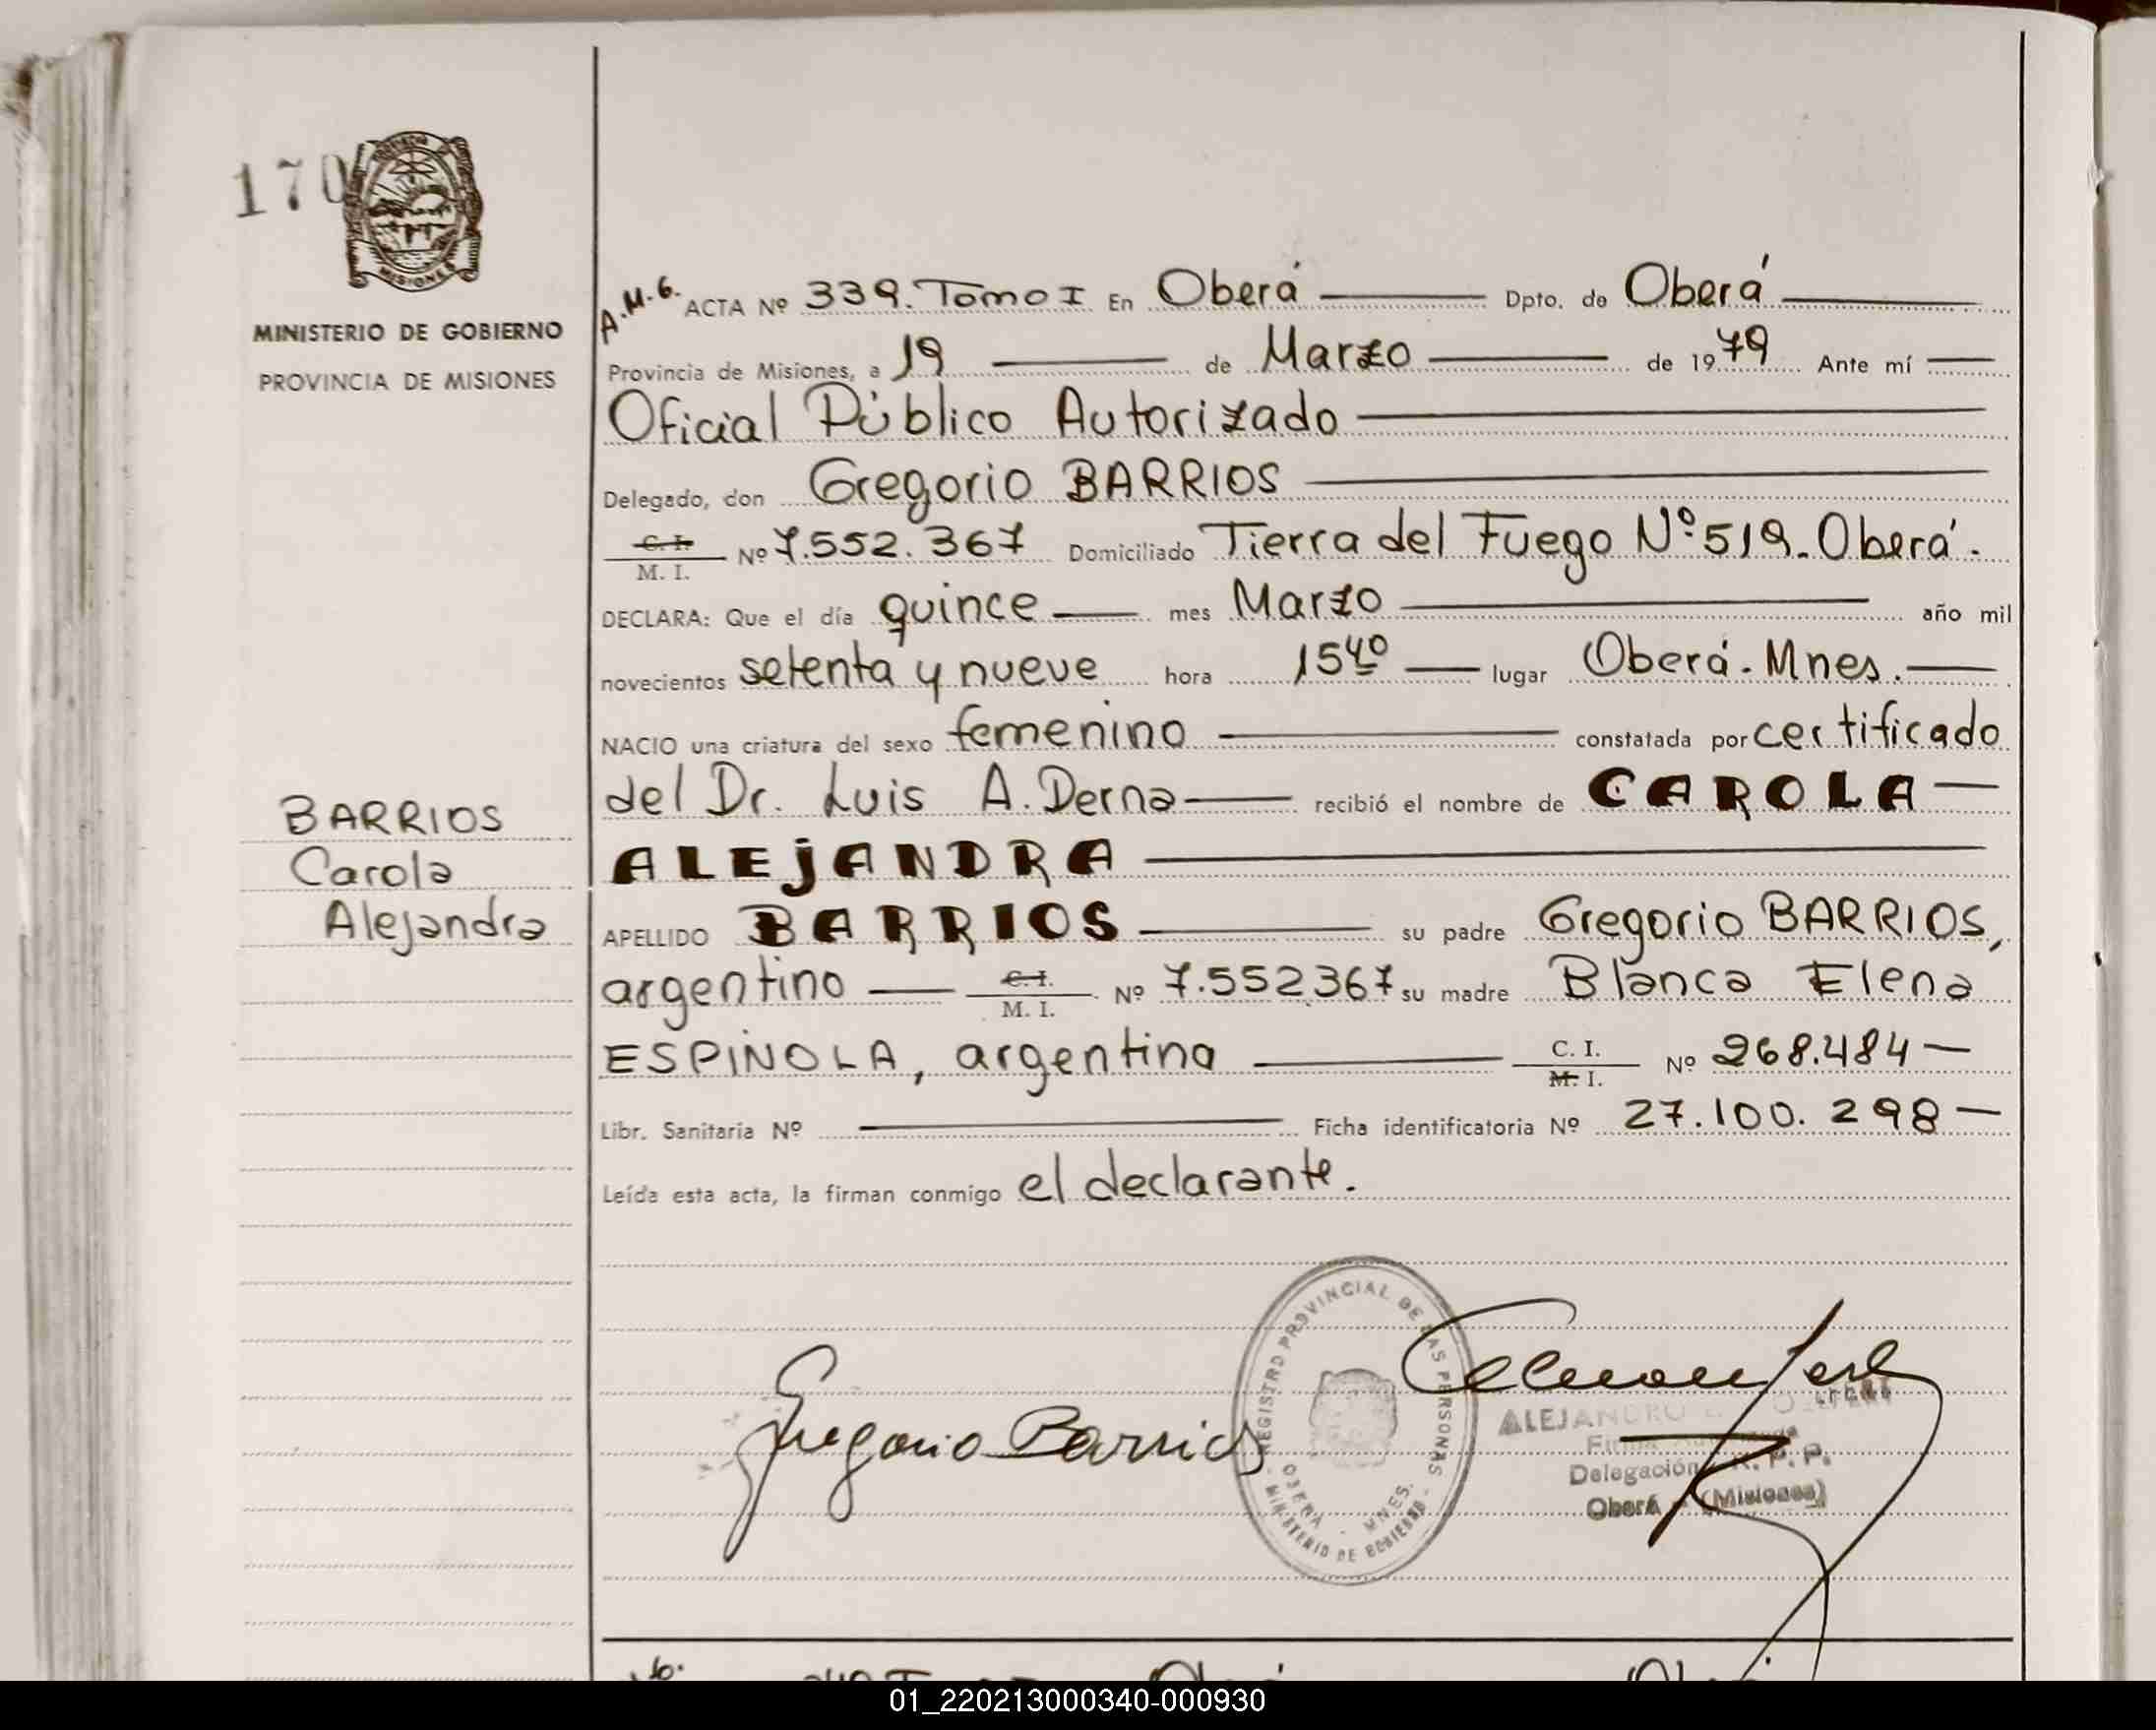 170
PROVINCIA
MISIONES
MINISTERIO DE GOBIERNO
PROVINCIA DE MISIONES
A.M.G. ACTA Nº 339. Tomo I En Oberá Dpto. de Oberá
Provincia de Misiones, a 19 de Marzo de 1979 Ante mí
Oficial Público Autorizado
Delegado, don Gregorio BARRIOS
C. I.
M. I. Nº 7.552.367 Domiciliado Tierra del Fuego Nº 519. Oberá.
DECLARA: Que el día quince mes Marzo año mil
novecientos setenta y nueve hora 15 40 lugar Oberá. Mnes.
NACIO una criatura del sexo femenino constatada por certificado
del Dr. Luis A. Derna recibió el nombre de CAROLA
ALEJANDRA
BARRIOS
Carola
Alejandra
APELLIDO BARRIOS su padre Gregorio BARRIOS,
argentino C. I.
M. I. Nº 7.552367 su madre Blanca Elena
ESPINOLA, argentina C. I.
M. I. Nº 268.484
Libr. Sanitaria Nº Ficha identificatoria Nº 27.100.298
Leída esta acta, la firman conmigo el declarante.
Gregorio Barrios
REGISTRO PROVINCIAL DE LAS PERSONAS
OBERÁ - MNES.
MINISTERIO DE GOBIERNO
ALEJANDRO
Delegación R. P. P.
Oberá - (Misiones)
01_220213000340-000930